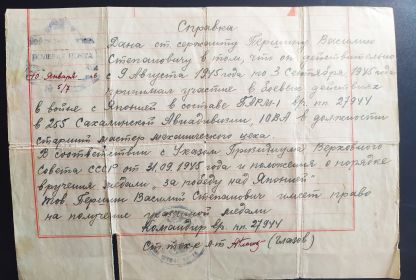 Справка
ПОЛЕВАЯ ПОЧТА
Дана ст. сержанту Першину Василию
Степановичу в том что он действительно
10 Января
с 9 Августа 1945 года по 3 Сентября 1945 года
5/7
принимал участие в боевых действиях
в войне с Японией в составе ПАРМ-1 вр. пп. 27944
в 255 Сахалинской Авиадивизии, 10ВА в должности
старший мастер механического цеха.
В соответствии с Указом Президиума Верховного
Совета СССР от 31.09 1945 года и положения о порядке
вручения медали, "за победу над Японией"
тов. Першин Василий Степанович имеет право
на получение указанной медали
Командир в/ч. пп. 27944
Ст. тех-к л-т (Глазов)